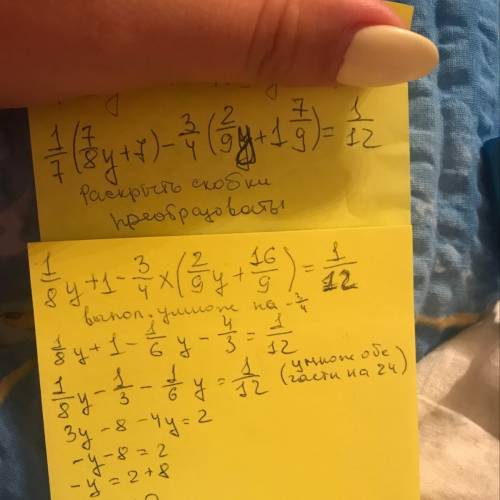 1/7(7/8y+7)-3/4(2/9y+1 7/9)=1/12
Раскрыть скобки
преобразовать
1/8y+1-3/4×(2/9y+16/9)=1/12
выпол. умнож на -3/4
1/8y+1-1/6y-4/3=1/12
1/8y-1/3-1/6y=1/12 (умнож обе части на 24)
3y-8-4y=2
-y-8=2
-y=2+8